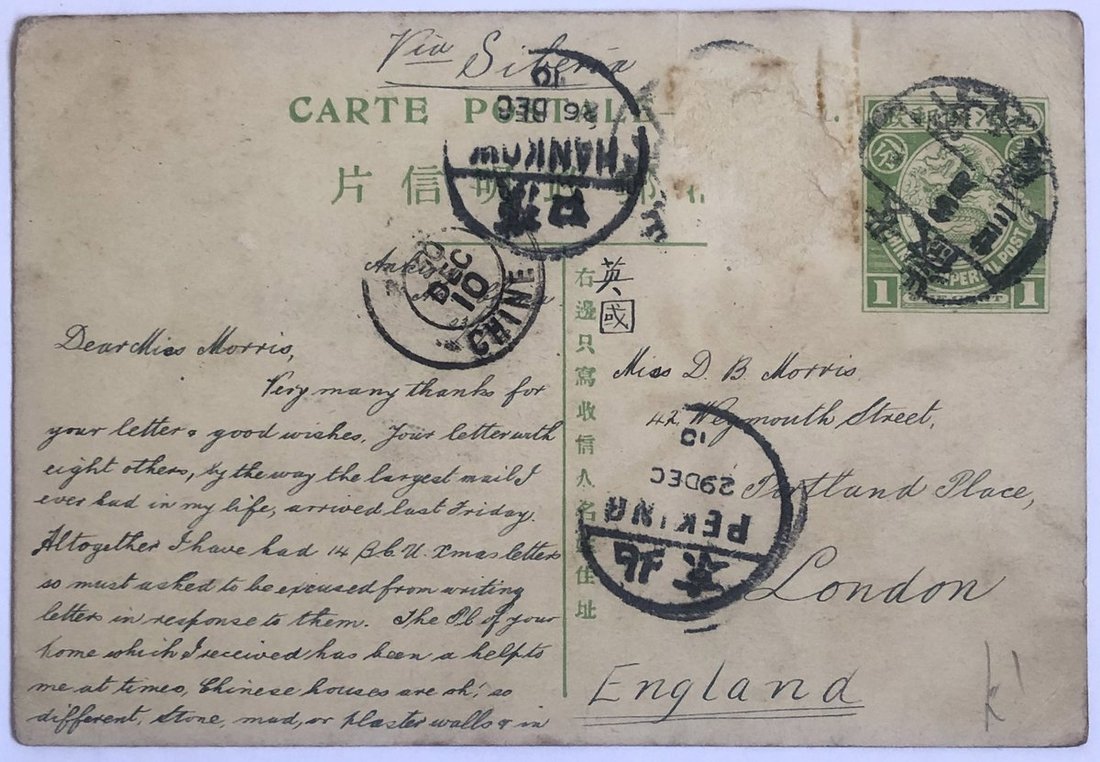 Via Siberia
CARTE POSTALE
片信明
10
26 DEC
HANKOW
漢口
DEC
10
CHINE
英國
CHINESE IMPERIAL POST
1 1
右邊只寫收信人名住址
Dear Miss Morris,
Very many thanks for
your letter & good wishes, Your letter with
eight others, by the way the largest mail I
ever had in my life, arrived last Friday.
Altogether I have had 14 B.C.U. Xmas letters
so must asked to be excused from writing
letters in response to them. The P.C. of your
home which I received has been a help to
me at times, Chinese houses are oh! so
different, stone, mud, or plaster walls & in
Miss D. B Morris
42 Weymouth Street,
Portland Place,
London
England
10
29 DEC
PEKING
北京